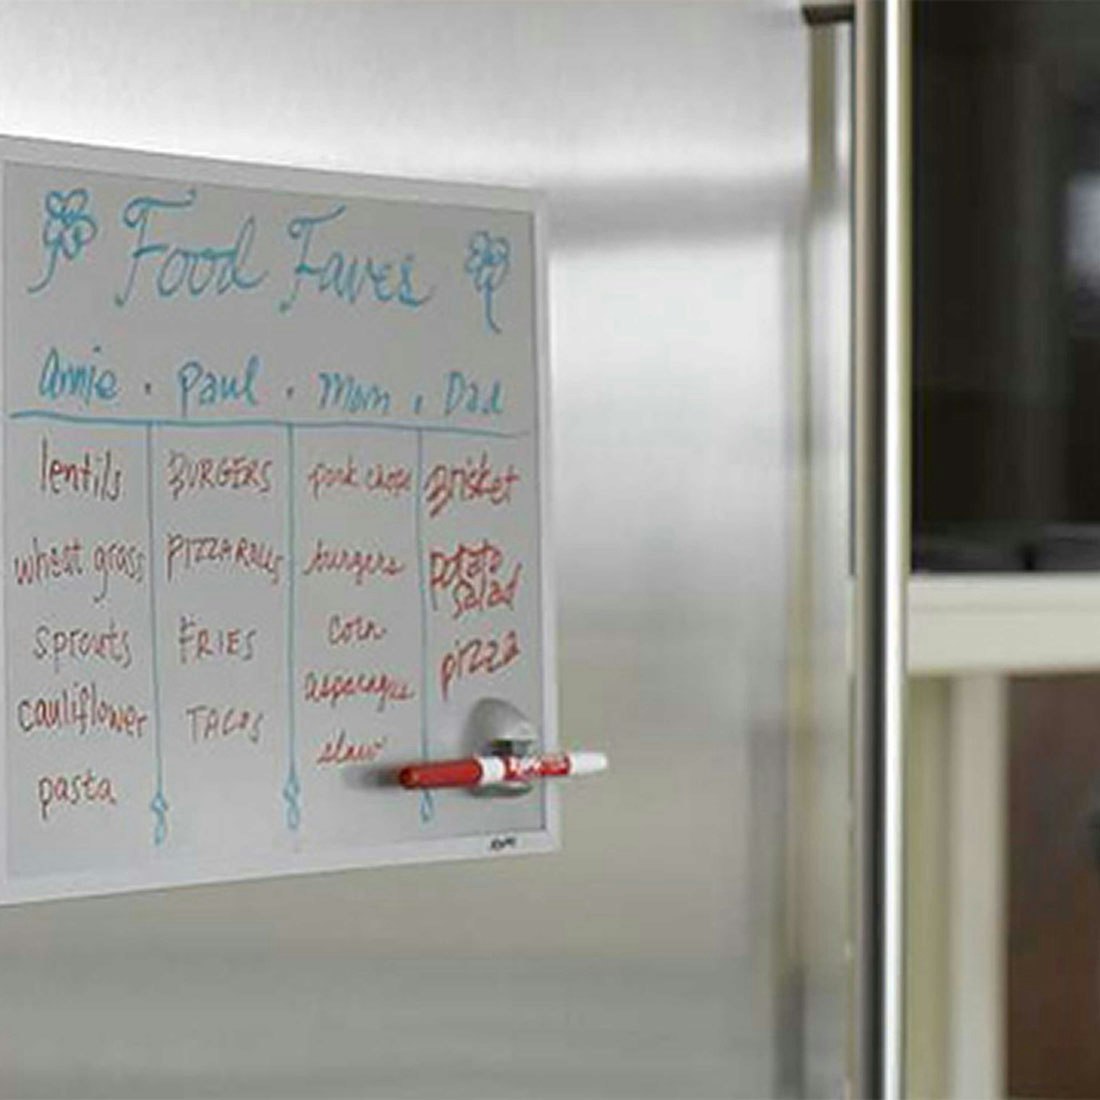 Food Faves
Annie · Paul · Mom · Dad
lentils BURGERS pork chops Brisket
wheat grass PIZZA ROLLS burgers potato
salad
sprouts FRIES corn pizza
cauliflower TACOS asparagus
pasta slaw
EXPO